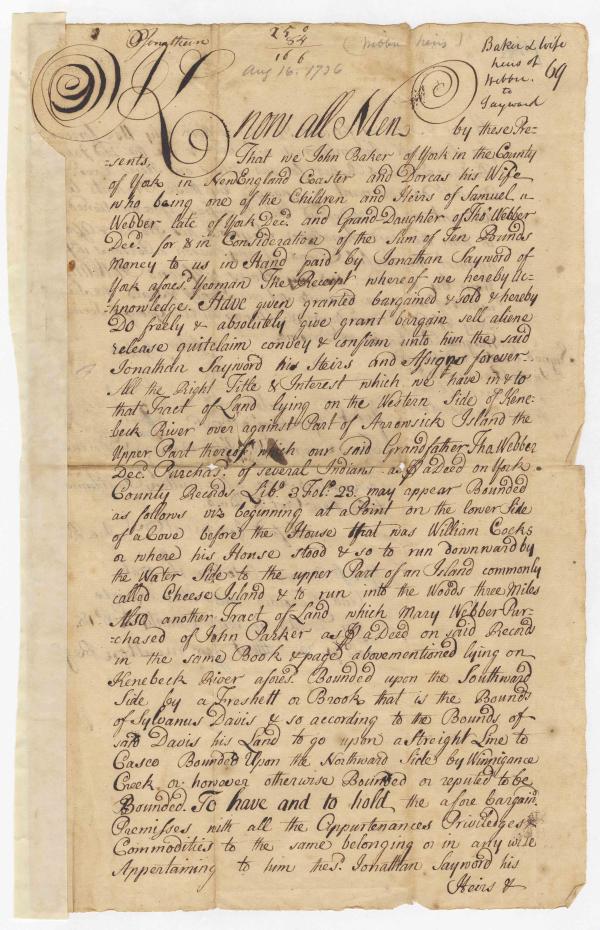 Jonathan
25 0
54
16 6
Aug 16. 1736
(Webber heirs)
Baker & Wife
heirs of
Webber.
to
Sayward
69
Know all Men by these Pre-
-sents, That we John Baker of York in the County
of York in New England Coaster and Dorcas his Wife
who being one of the Children and Heirs of Samuel
Webber late of York Decd. and Grand Daughter of Tho Webber
Decd. for & in Consideration of the Sum of Ten Pounds
Money to us in Hand paid by Jonathan Sayward of
York aforesd. Yeoman The Receipt whereof we hereby ac-
-knowledge. Have given granted bargained & Sold & hereby
Do freely & absolutely give grant bargain sell aliene
release quitclaim convey & confirm unto him the said
Jonathan Sayward his Heirs and Assigns forever
All the Right Title & Interest which we have in & to
that Tract of Land lying on the Western Side of Kene-
beck River over against Part of Arrowsick Island the
Upper Part thereof which our said Grandfather Tho Webber
Decd. Purchasd. of several Indians as p a Deed on York
County Records Libo. 2 Folo. 23 may appear Bounded
as follows viz beginning at a Point on the lower Side
of a Cove before the House that was William Cocks
or where his House stood & so to run downward by
the Water Side to the upper Part of an Island commonly
called Cheese Island & to run into the Woods three Miles
Also another Tract of Land which Mary Webber Pur-
-chased of John Parker as p a Deed on said Records
in the same Book & page abovementioned lying on
Kenebeck River aforesd. Bounded upon the Southward
Side by a Freshett or Brook that is the Bounds
of Sylvanus Davis & so according to the Bounds of
said Davis his Land to go upon a Streight Line to
Casco Bounded Upon the Northward Side by Winnigance
Creek or however otherwise Bounded or reputed to be
Bounded. To have and to hold, the afore bargaind.
Premisses with all the Appurtenances Priviledges &
Commodities to the same belonging or in any wise
Appertaining to him the sd. Jonathan Sayward his
Heirs &